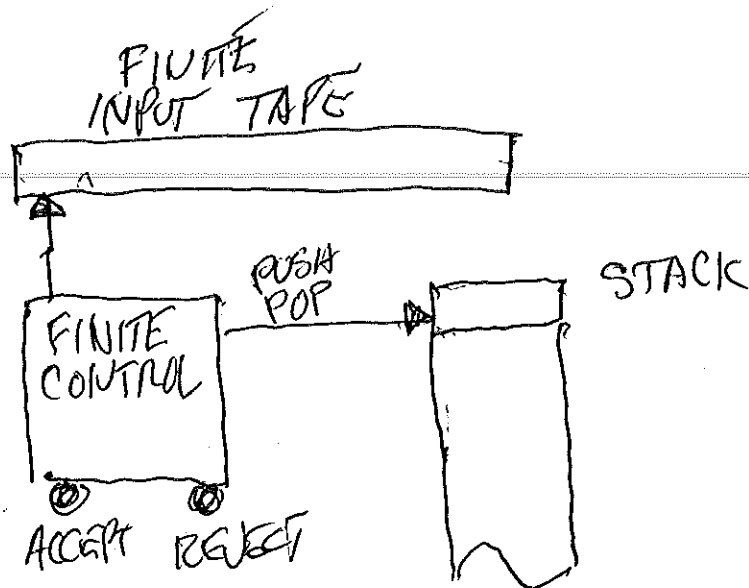 FINITE
INPUT TAPE
PUSH
POP
STACK
FINITE
CONTROL
ACCEPT REJECT